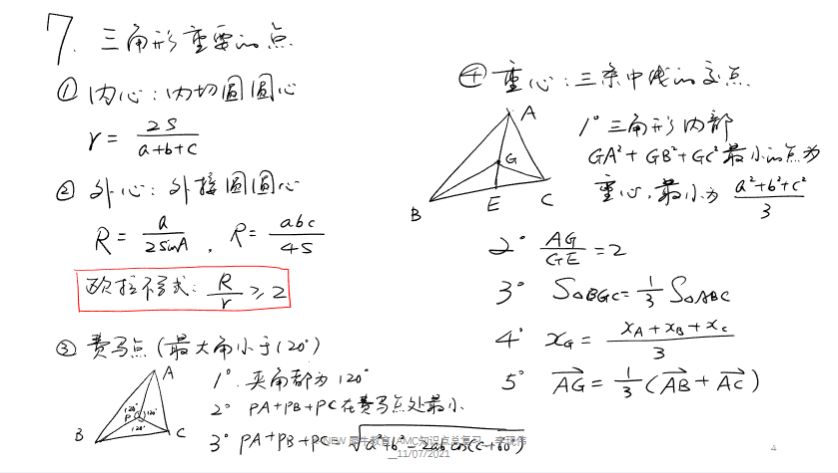 7. 三角形重要的点
① 内心：内切圆圆心
r = 2S / (a+b+c)
② 外心：外接圆圆心
R = a / (2sinA) , R = abc / (4S)
欧拉不等式: R / r ≥ 2
③ 费马点 (最大角小于120°)
A
B
C
P
120°
120°
120°
1° 夹角都为120°
2° PA+PB+PC在费马点处最小
3° PA+PB+PC = √(a²+b²-2ab cos(C+60°))
④ 重心：三条中线的交点
A
B
C
G
E
1° 三角形内部
GA²+GB²+GC²最小的点为
重心,最小为 (a²+b²+c²) / 3
2° AG / GE = 2
3° S△BGC = 1/3 S△ABC
4° x_G = (x_A + x_B + x_C) / 3
5° →AG = 1/3 (→AB + →AC)
NEW 犀牛教育 AMC知识点总复习
11/07/2021
4